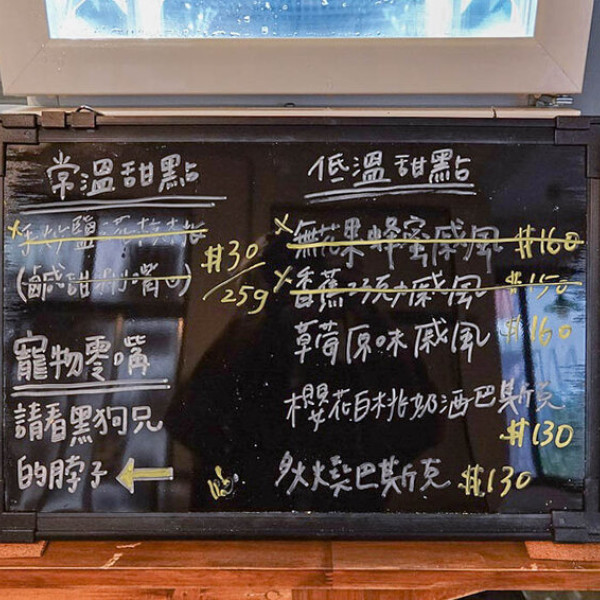 常溫甜點
手炒鹽
(鹹甜涮嘴)
$30/25g
寵物零嘴
請看黑狗兄
的脖子
低溫甜點
x 無花果蜂蜜戚風 $160
x 香蕉巧克力戚風 $150
草莓原味戚風 $160
櫻花白桃奶酒巴斯克
$130
火燒巴斯克 $130